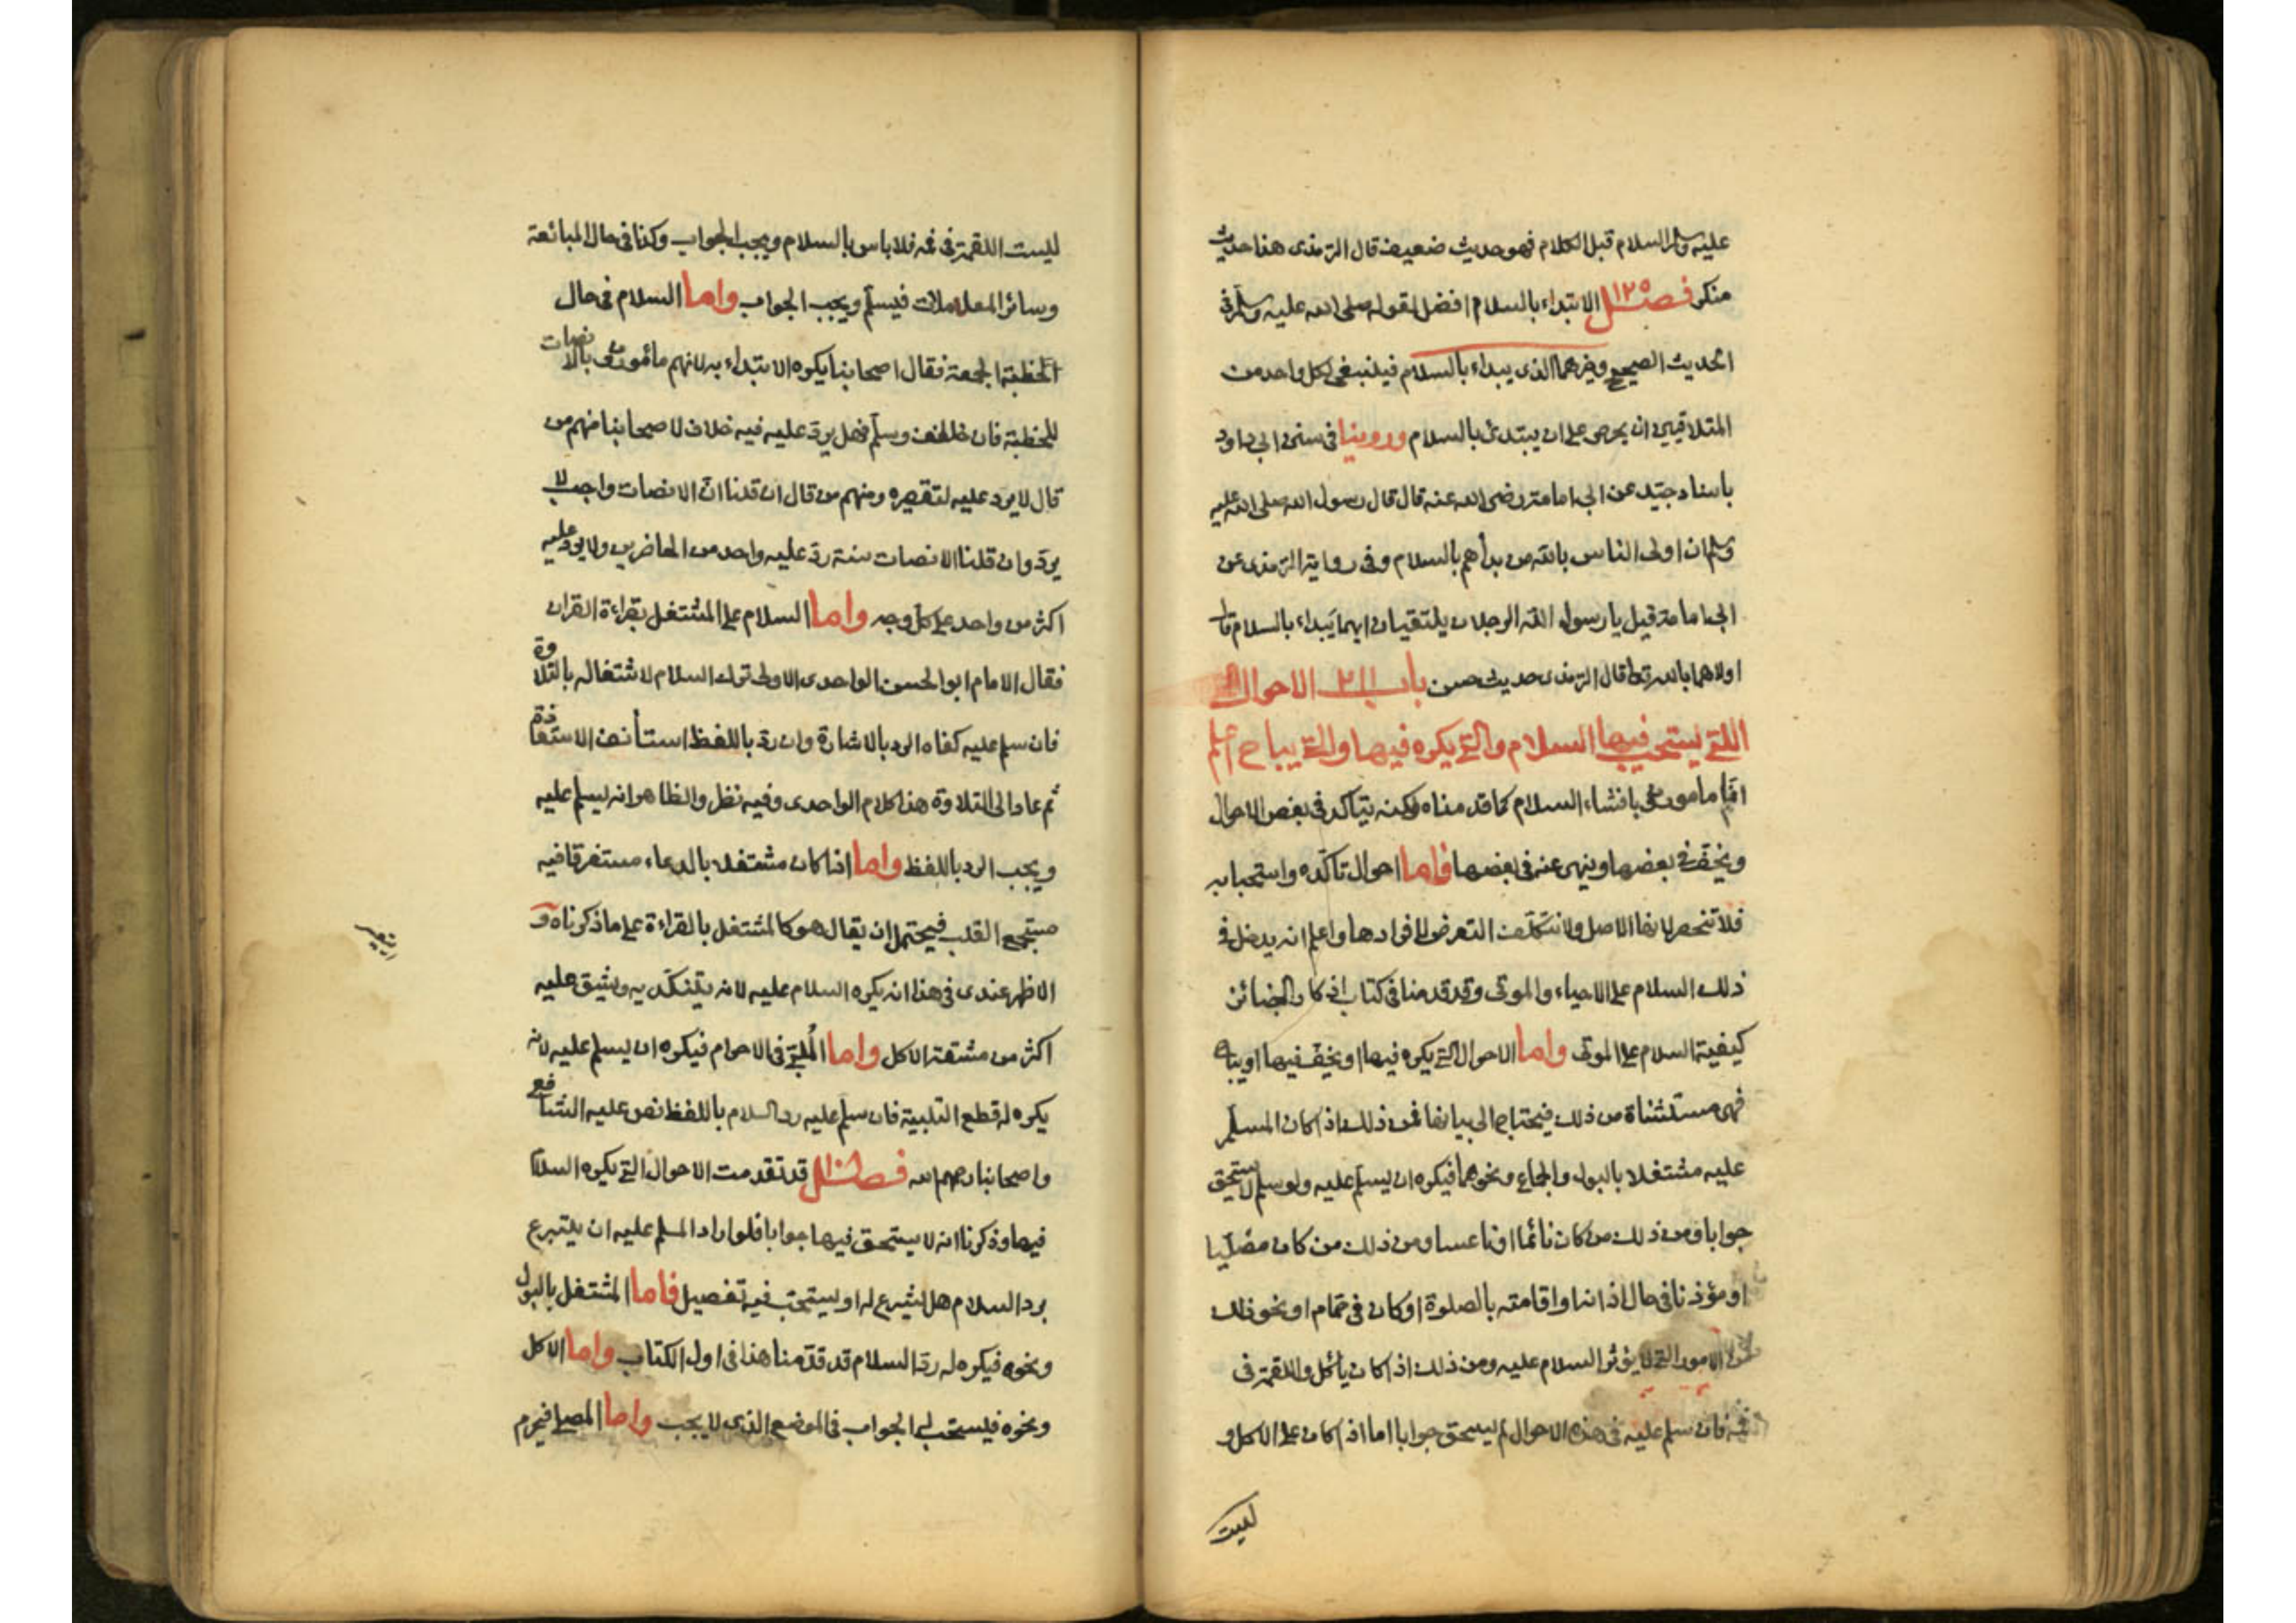 عليه وسلم السلام قبل الكلام فهو حديث ضعيف قال الترمذى هذا حديث
منكر فصل ١٢٥ الابتداء بالسلام افضل لقوله صلى الله عليه وسلم فى
الحديث الصحيح وخيرهما الذى يبداء بالسلام فينبغى لكل واحد من
المتلاقيين ان يحرص على ان يبتدئ بالسلام وروينا فى سنن ابى داود
باسناد جيّد عن ابى امامة رضى الله عنه قال قال رسول الله صلى الله عليه
وسلم ان اولى الناس بالله من بدأهم بالسلام وفى رواية الترمذى عن
ابى امامة قيل يا رسول الله الرجلان يلتقيان ايهما يبداء بالسلام قال
اولاهما بالله تعالى قال الترمذى حديث حسن باب ٢١١ الاحوال
اللتى يستحب فيها السلام والتى يكره فيها والتى يباح اعلم
انّا مامورون بافشاء السلام كما قدمناه لكنه يتاكد فى بعض الاحوال
ويخف فى بعضها وينهى عنه فى بعضها فاما احوال تاكّده واستحبابه
فلا تنحصر لانها الاصل ولا نتكلّف التعرض لافرادها واعلم انه يدخل فى
ذلك السلام على الاحياء والموتى وقد قدمنا فى كتاب اذكار الجنائز
كيفية السلام على الموتى واما الاحوال التى يكره فيها او يخفّ فيها او يباح
فهى مستثناة من ذلك فيحتاج الى بيانها فمن ذلك اذا كان المسلّم
عليه مشتغلا بالبول والجماع ونحوهما فيكره ان يسلّم عليه ولو سلم لا يستحق
جوابا ومن ذلك من كان نائما او ناعسا ومن ذلك من كان مصلّيا
او مؤذنا فى حال اذانه او اقامته بالصلوة او كان فى حمّام او نحو ذلك
من الامور التى لا يؤثر السلام عليه ومن ذلك اذا كان يأكل واللقمة فى
فمه فان سلم عليه فى هذه الاحوال لم يستحق جوابا اما اذا كان على الاكل و
ليست
ليست اللقمة فى فمه فلا باس بالسلام ويجب الجواب وكذا فى حال المبائعة
وسائر المعاملات فيسلّم ويجب الجواب واما السلام فى حال
الخطبة الجمعة فقال اصحابنا يكره الابتداء به لانهم مأمورون بالانصات
للخطبة فان خالف وسلّم فهل يردّ عليه فيه خلاف لاصحابنا منهم من
قال لا يرد عليه لتقصيره ومنهم من قال ان قلنا انّ الانصات واجب لا
يردّ وان قلنا الانصات سنة ردّ عليه واحد من الحاضرين ولا يرد عليه
اكثر من واحد على كلّ وجه واما السلام على المشتغل بقراءة القران
فقال الامام ابو الحسن الواحدى الاولى ترك السلام لاشتغاله بالتلاوة
فان سلم عليه كفاه الرد بالاشارة وان ردّ باللفظ استأنف الاستعاذة
ثم عاد الى التلاوة هذا كلام الواحدى وفيه نظر والظاهر انه يسلم عليه
ويجب الرد باللفظ واما اذا كان مشتغلا بالدعاء مستغرقا فيه
مستجمع القلب فيحتمل ان يقال هو كالمشتغل بالقراءة على ما ذكرناه و
الاظهر عندى فى هذا انه يكره السلام عليه لانه يتنكّد به ويشق عليه
اكثر من مشقة الاكل واما المُلبّى فى الاحرام فيكره ان يسلم عليه لانه
يكره له قطع التلبية فان سلم عليه رد السلام باللفظ نص عليه الشافعى
واصحابنا رحمهم الله فصل قد تقدمت الاحوال التى يكره السلام
فيها وذكرنا انه لا يستحق فيها جوابا فلو اراد المسلم عليه ان يتبرع
برد السلام هل يشرع له او يستحبّ فيه تفصيل فاما المشتغل بالبول
ونحوه فيكره له ردّ السلام قد قدّمنا هذا فى اول الكتاب واما الاكل
ونحوه فيستحب له الجواب فى الموضع الذى لا يجب واما المصلى فيحرم